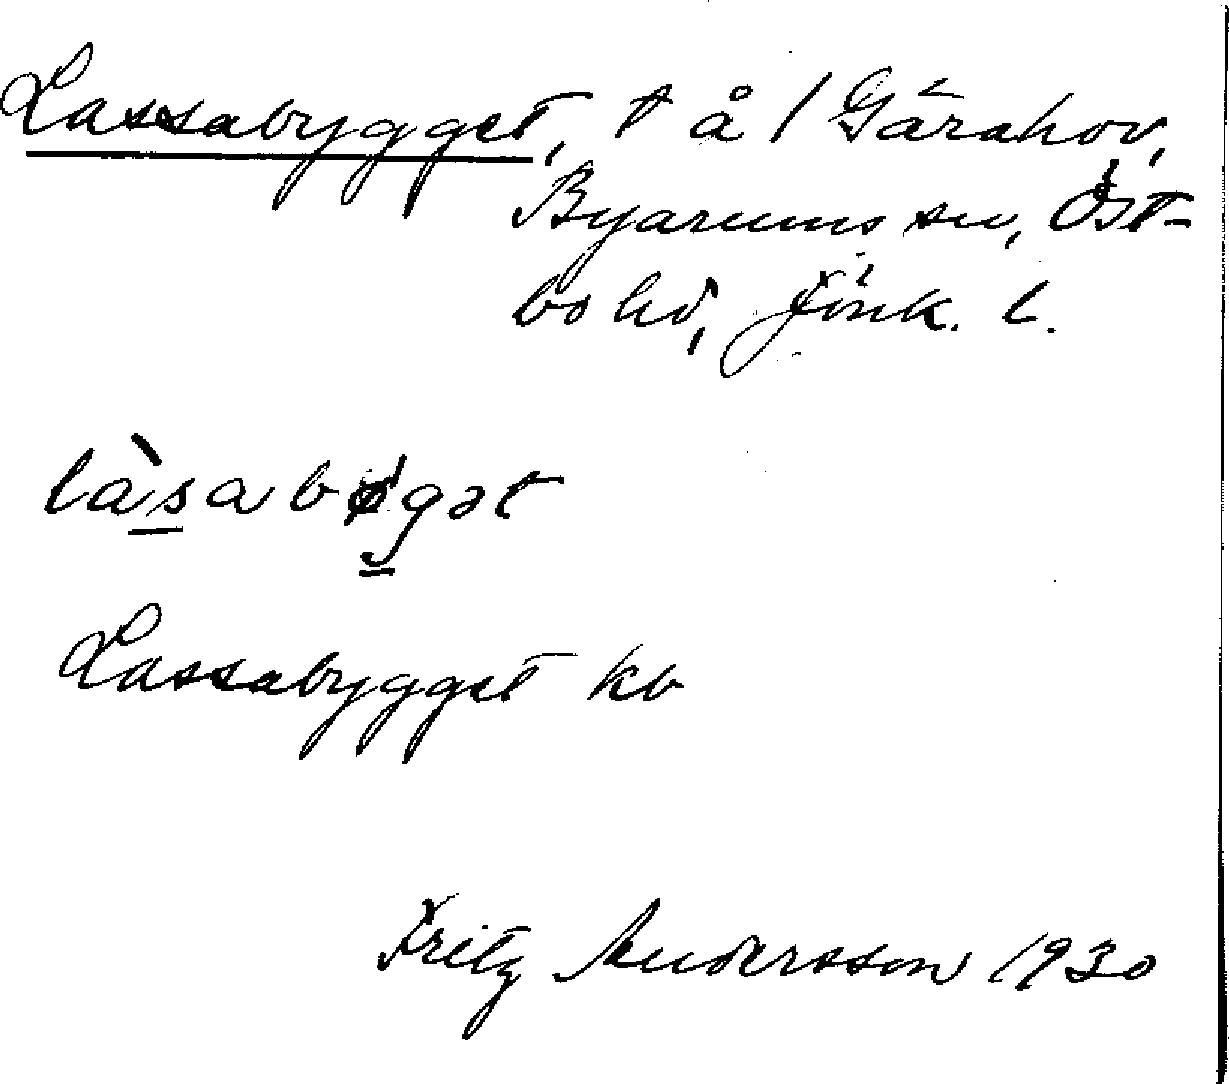 Lassabygget, t å / Gärahov,
Byarums sn, Öst-
bo hd, Jönk. l.
làsabygət
Lassabygget kb
Fritz Andersson 1930